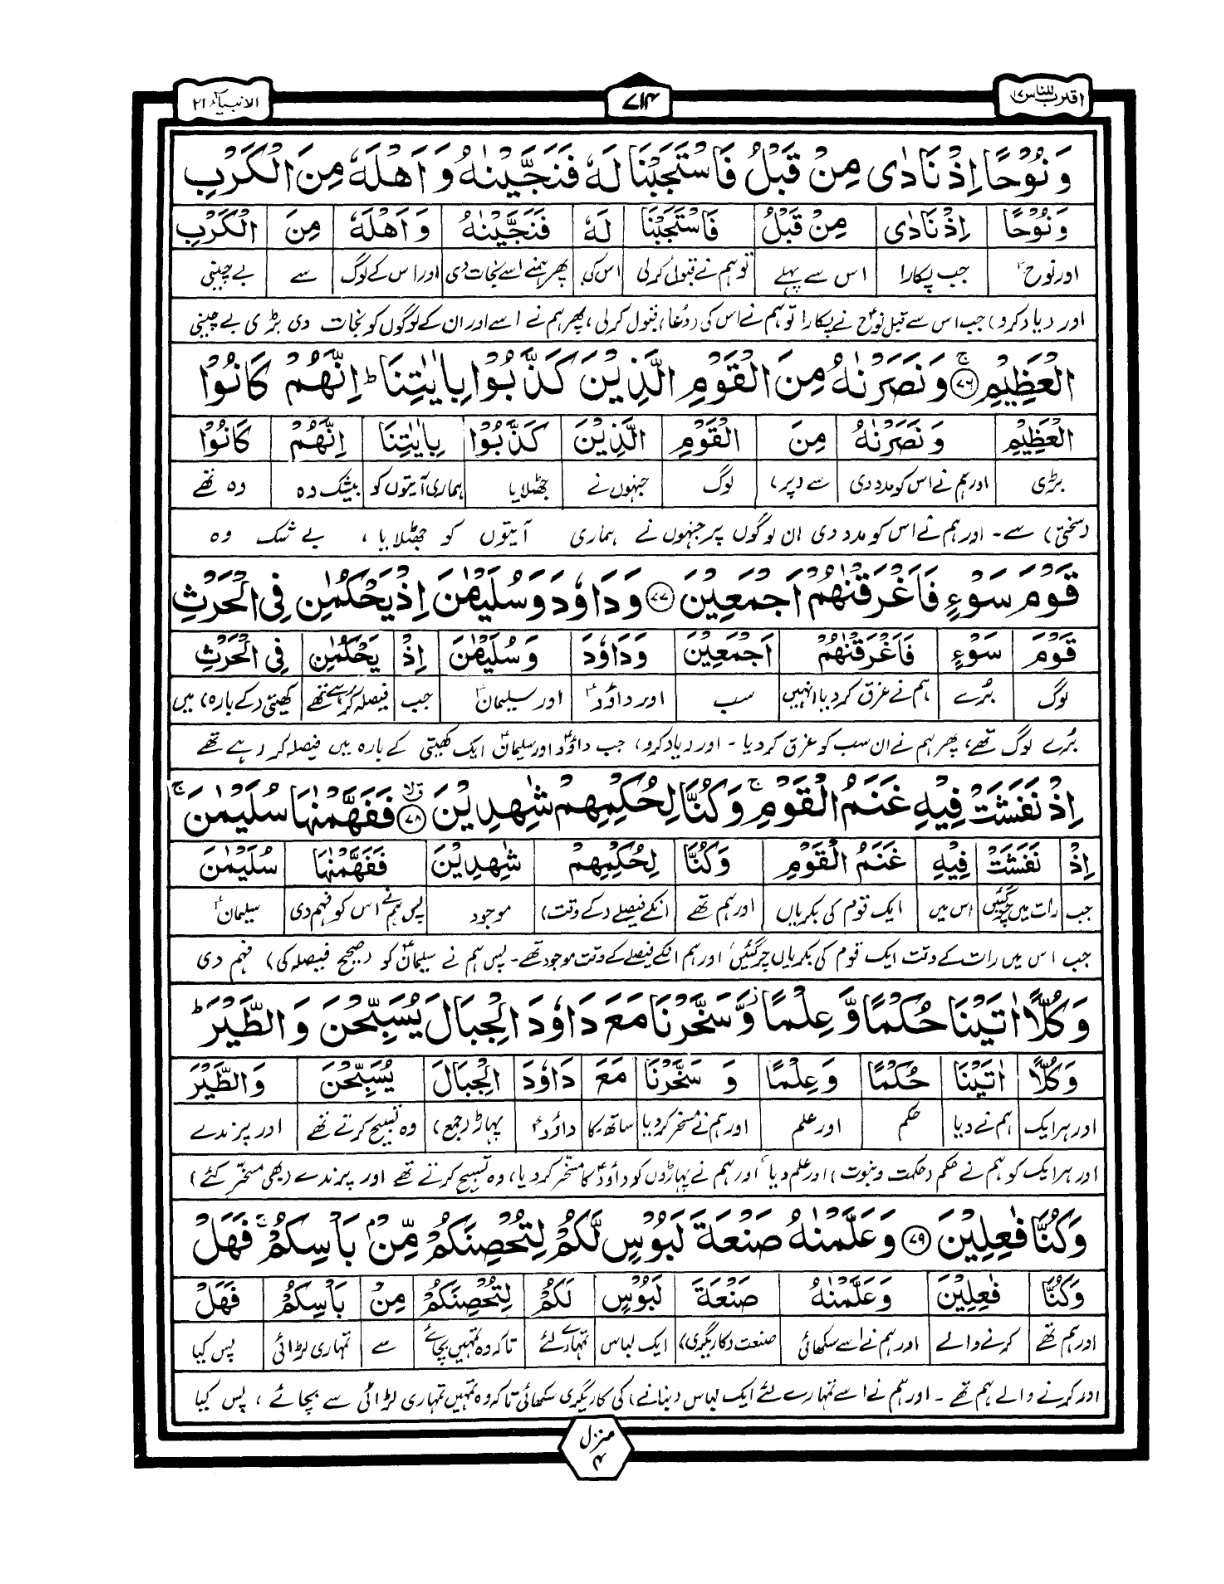 اقترب للناس ۱۷
۷۱۴
الانبیآء ۲۱
وَنُوْحًا اِذْ نَادٰی مِنْ قَبْلُ فَاسْتَجَبْنَا لَهٗ فَنَجَّیْنٰهُ وَ اَهْلَهٗ مِنَ الْكَرْبِ
وَنُوْحًا اِذْ نَادٰی مِنْ قَبْلُ فَاسْتَجَبْنَا لَهٗ فَنَجَّیْنٰهُ وَ اَهْلَهٗ مِنَ الْكَرْبِ
اور نوحؑ جب پکارا اس سے پہلے تو ہم نے قبول کرلی اس کی پھر ہمنے اسے نجات دی اور اس کے لوگ سے بے چینی
اور (یاد کرو) جب اس سے قبل نوحؑ نے پکارا تو ہم نے اس کی (دُعا) قبول کرلی، پھر ہم نے اسے اور ان کے لوگوں کو نجات دی بڑی بے چینی
الْعَظِیْمِ ۷۶ۚ وَ نَصَرْنٰهُ مِنَ الْقَوْمِ الَّذِیْنَ كَذَّبُوْا بِاٰیٰتِنَا ؕ اِنَّهُمْ كَانُوْا
الْعَظِیْمِ وَ نَصَرْنٰهُ مِنَ الْقَوْمِ الَّذِیْنَ كَذَّبُوْا بِاٰیٰتِنَا اِنَّهُمْ كَانُوْا
بڑی اور ہم نے اس کو مدد دی سے (پر) لوگ جنہوں نے جھٹلایا ہماری آیتوں کو بیشک وہ وہ تھے
(سختی) سے۔ اور ہم نے اس کو مدد دی ان لوگوں پر جنہوں نے ہماری آیتوں کو جھٹلایا، بے شک وہ
قَوْمَ سَوْءٍ فَاَغْرَقْنٰهُمْ اَجْمَعِیْنَ ۷۷ وَ دَاوٗدَ وَ سُلَیْمٰنَ اِذْ یَحْكُمٰنِ فِی الْحَرْثِ
قَوْمَ سَوْءٍ فَاَغْرَقْنٰهُمْ اَجْمَعِیْنَ وَدَاوٗدَ وَسُلَیْمٰنَ اِذْ یَحْكُمٰنِ فِی الْحَرْثِ
لوگ بُرے ہم نے غرق کردیا انہیں سب اور داؤدؑ اور سلیمانؑ جب فیصلہ کر رہے تھے کھیتی (کے بارہ) میں
بُرے لوگ تھے، پھر ہم نے ان سب کو غرق کردیا۔ اور (یاد کرو) جب داؤدؑ اور سلیمانؑ ایک کھیتی کے بارہ میں فیصلہ کر رہے تھے
اِذْ نَفَشَتْ فِیْهِ غَنَمُ الْقَوْمِ ۚ وَ كُنَّا لِحُكْمِهِمْ شٰهِدِیْنَ ۷۸ۙ فَفَهَّمْنٰهَا سُلَیْمٰنَ ۚ
اِذْ نَفَشَتْ فِیْهِ غَنَمُ الْقَوْمِ وَكُنَّا لِحُكْمِهِمْ شٰهِدِیْنَ فَفَهَّمْنٰهَا سُلَیْمٰنَ
جب رات میں چرگئیں اس میں ایک قوم کی بکریاں اور ہم تھے انکے فیصلے (کے وقت) موجود پس ہم نے اس کو فہم دی سلیمانؑ
جب اس میں رات کے وقت ایک قوم کی بکریاں چرگئیں اور ہم انکے فیصلے کے وقت موجود تھے۔ پس ہم نے سلیمانؑ کو (صحیح فیصلہ کی) فہم دی
وَ كُلًّا اٰتَیْنَا حُكْمًا وَّ عِلْمًا ؗ وَّ سَخَّرْنَا مَعَ دَاوٗدَ الْجِبَالَ یُسَبِّحْنَ وَ الطَّیْرَ ؕ
وَكُلًّا اٰتَیْنَا حُكْمًا وَعِلْمًا وَ سَخَّرْنَا مَعَ دَاوٗدَ الْجِبَالَ یُسَبِّحْنَ وَالطَّیْرَ
اور ہر ایک ہم نے دیا حکم اور علم اور ہم نے مسخر کردیا ساتھ۔کا داؤدؑ پہاڑ (جمع) وہ تسبیح کرتے تھے اور پرندے
اور ہر ایک کو ہم نے حکم (حکمت و نبوت) اور علم دیا، اور ہم نے پہاڑوں کو داؤدؑ کا مسخر کردیا، وہ تسبیح کرتے تھے اور پرندے (بھی مسخر کئے)
وَ كُنَّا فٰعِلِیْنَ ۷۹ وَ عَلَّمْنٰهُ صَنْعَةَ لَبُوْسٍ لَّكُمْ لِتُحْصِنَكُمْ مِّنْۢ بَاْسِكُمْ ۚ فَهَلْ
وَكُنَّا فٰعِلِیْنَ وَعَلَّمْنٰهُ صَنْعَةَ لَبُوْسٍ لَكُمْ لِتُحْصِنَكُمْ مِنْ بَاْسِكُمْ فَهَلْ
اور ہم تھے کرنے والے اور ہم نے اسے سکھائی صنعت (کاریگری) ایک لباس تمہارے لئے تاکہ وہ تمہیں بچائے سے تمہاری لڑائی پس کیا
اور کرنے والے ہم تھے۔ اور ہم نے اسے تمہارے لئے ایک لباس (بنانے) کی کاریگری سکھائی تاکہ وہ تمہیں تمہاری لڑائی سے بچائے، پس کیا
منزل ۴